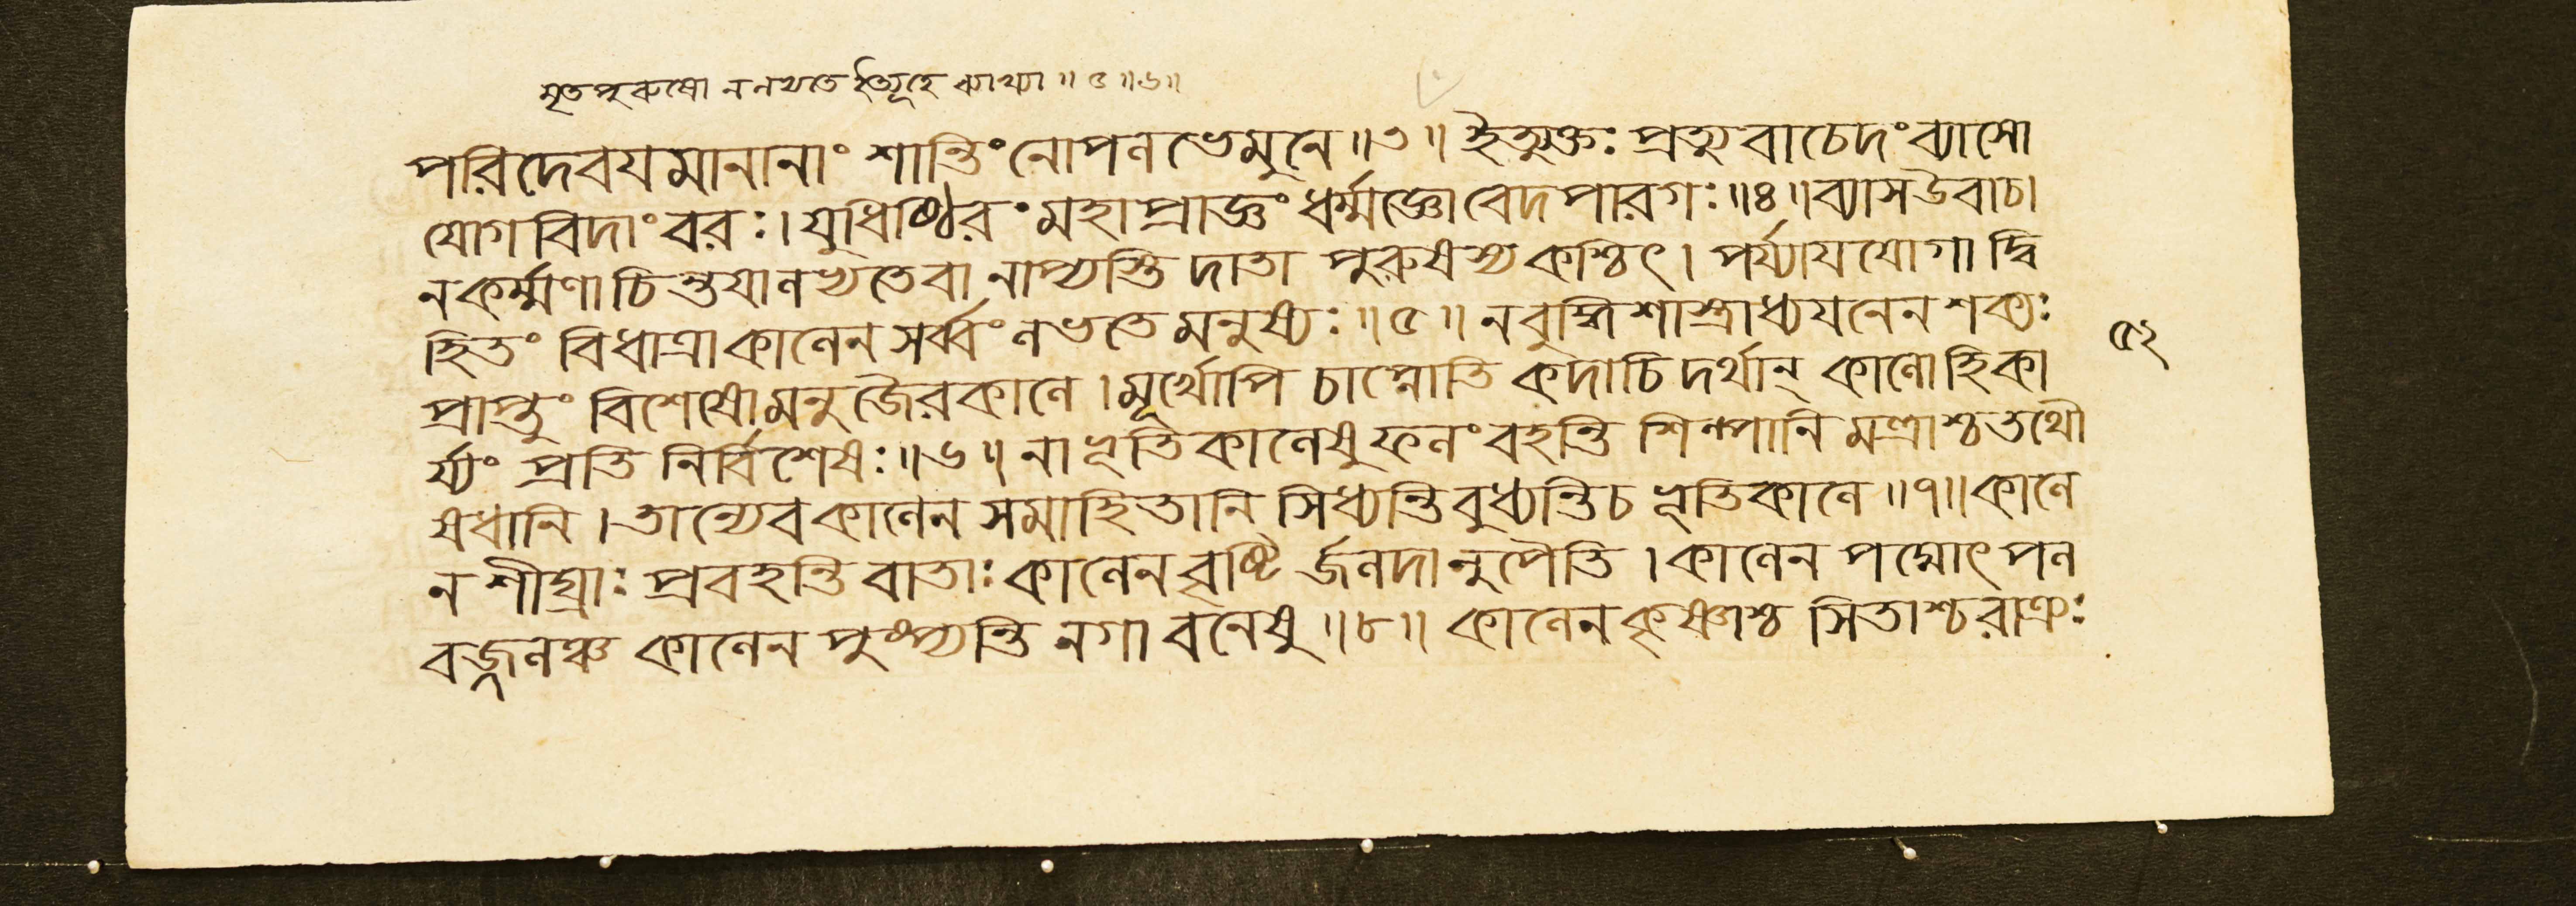 মৃতপুরুষো ন লভ্যতে ইত্যূহে ব্যাখ্যা ॥ ৫ ॥ ৬ ॥
পরিদেবযমানানাং শান্তিং নোপলভে মুনে ॥ ৩ ॥ ইত্যুক্তঃ প্রত্যুবাচেদং ব্যাসো
যোগবিদাং বরঃ । যুধিষ্ঠিরং মহাপ্রাজ্ঞং ধর্ম্মজ্ঞো বেদপারগঃ ॥ ৪ ॥ ব্যাস উবাচ ।
ন কর্ম্মণা চিন্তযা লভ্যতে বা নাপ্যস্তি দাতা পুরুষস্য কশ্চিৎ । পর্য্যাযযোগাদ্বি
হিতং বিধাত্রা কালেন সর্ব্বং লভতে মনুষ্যঃ ॥ ৫ ॥ ন বুদ্ধিশাস্ত্রাধ্যযনেন শক্যঃ
প্রাপ্তুং বিশেষো মনুজৈরকালে । মূর্খোপি চাপ্নোতি কদাচিদর্থান্ কালো হি কা
র্য্যং প্রতি নির্বিশেষঃ ॥ ৬ ॥ নাভূতিকালেষু ফলং বহন্তি শিল্পানি মন্ত্রাশ্চ তথৌ
ষধানি । তান্যেব কালেন সমাহিতানি সিধ্যন্তি বুধ্যন্তি চ ভূতিকালে ॥ ৭ ॥ কালে
ন শীঘ্রাঃ প্রবহন্তি বাতাঃ কালেন বৃষ্টি র্জলদানুপৈতি । কালেন পদ্মোৎপল
বজ্জলঞ্চ কালেন পুষ্প্যন্তি নগা বনেষু ॥ ৮ ॥ কালেন কৃষ্ণাশ্চ সিতাশ্চ রাত্রঃ
৫২